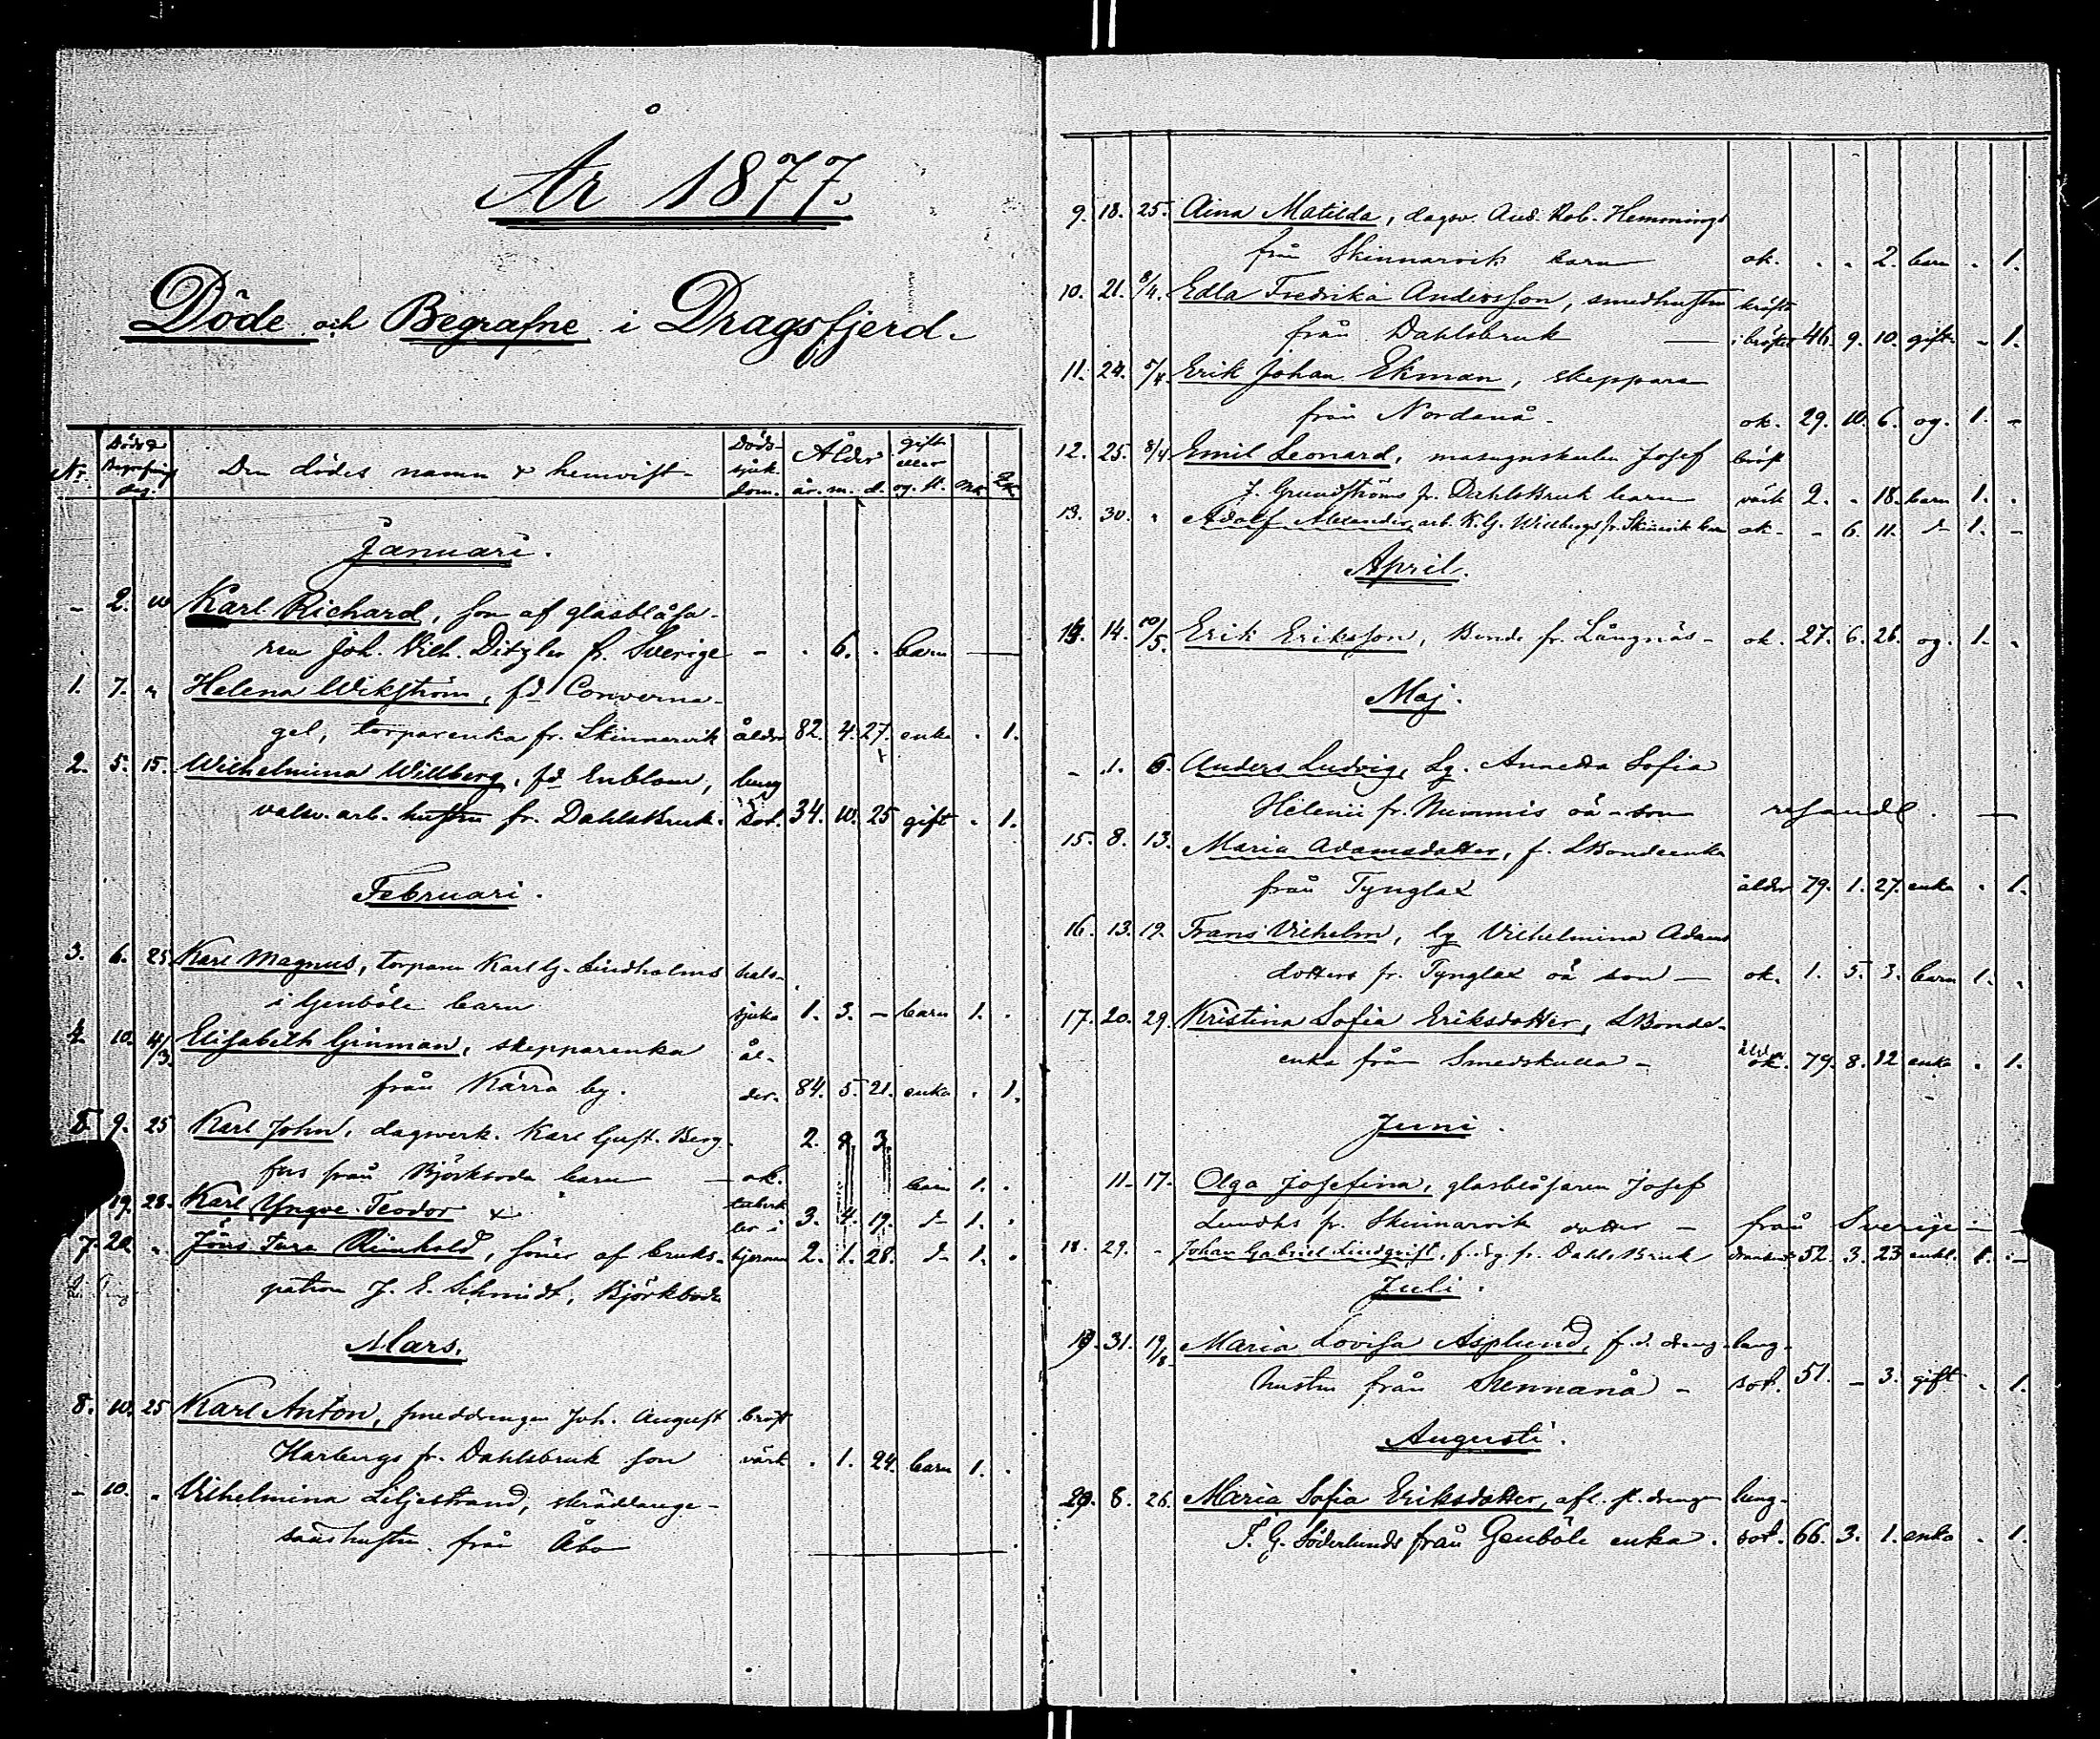 År 1877.
Döde och Begrafne i Dragsfjerd.
Nr. Döds & Begrafnings dag. Den dödes namn & hemvist. Döds- sjuk- dom. Ålder år. m. d. gift eller og. st. Mk. Qk.
Januari.
- 2. 10 Karl Richard, son af glasblåsa-
ren Joh. Vilh. Ditzler fr. Sverige - . 6. . barn —
1. 7. " Helena Wikström, fd
gel, torparenka fr. Skinnarvik ålder 82. 4. 27. enka . 1.
2. 5. 15. Wilhelmina Willberg, fd Enblom, lung
valsv. arb. hustru fr. Dahlsbruk. sot. 34. 10. 25 gift . 1.
Februari.
3. 6. 25 Karl Magnus, torparen Karl G. Lindholms hals-
i Genböle barn sjuka 1. 3. - barn 1. .
4. 10. 14/3. Elisabeth Ginman, skepparenka ål-
från Kärra by. der. 84. 5. 21. enka . 1.
5. 9. 25 Karl John, dagsverk. Karl Gust. Berg- 2. 8. 3.
fors från Björkboda barn - ok. barn 1. .
19. 28. Karl Yngve Teodor & tuberk
ler i 3. 4. 19. d- 1. .
7. 20 " Jöns Ture Reinhold, söner af bruks- hjernan 2. 1. 28. d- 1. .
patron J. E. Schmidt, Björkboda
Mars.
8. 10. 25 Karl Anton, smeddrengen Joh. August bröst
Harbergs fr. Dahlsbruk son värk . 1. 24. barn 1. .
- 10. " Vilhelmina Liljestrand,
hustru från Åbo
9. 18. 25. Aina Matilda, dagsv. And. Rob. Hemmings
från Skinnarvik barn ok. . . 2. barn . 1.
10. 21. 8/4. Edla Fredrika Andersson, smedhustru kräfta
från Dahlsbruk — i bröstet 46. 9. 10. gift. - 1.
11. 24. 5/4. Erik Johan Ekman, skeppare
från Nordanå. ok. 29. 10. 6. og. 1. -
12. 25. 8/4 Emil Leonard, masugnskarlen Josef bröst
J. Grundströms fr. Dahlsbruk barn värk 2. . 18. barn 1. .
13. 30. " Adolf Alexander, arb. K. G. Willbergs fr. Skinnarvik barn ok. - 6. 11. d- 1. -
April.
14. 14. 10/5. Erik Eriksson, Bonde fr. Långnäs - ok. 27. 6. 26. og. 1. .
Maj.
- 1. 6. Anders Ludvig, Lg. Annetta Sofia
Helenii fr. Nummis oä - son resande. —
15. 8. 13. Maria Adamsdotter, f. SBondeenka
från Tynglax ålder 79. 1. 27. enka . 1.
16. 13. 19. Frans Vilhelm, lg Vilhelmina Adams
dotters fr. Tynglax oä son — ok. 1. 5. 3. barn 1. .
17. 20. 29. Kristina Sofia Eriksdotter, SBonde-
enka från Smedskulla - ålder ok. 79. 8. 12 enka . 1.
Juni.
11. 17. Olga Josefina, glasblåsaren Josef
Lundhs fr. Skinnarvik dotter - från Sverige —
18. 29. - Johan Gabriel Lindqvist, f. dg. fr. Dahlsbruk 52. 3. 23 enkl. 1. -
Juli.
19. 31. 19/8. Maria Lovisa Asplund, f.d. dreng- lung-
hustru från Stennanå - sot. 51. - 3. gift . 1.
Augusti.
20. 8. 26. Maria Sofia Eriksdotter, afl. st. drengen lung-
J. G. Söderlunds från Genböle enka. sot. 66. 3. 1. enka . 1.